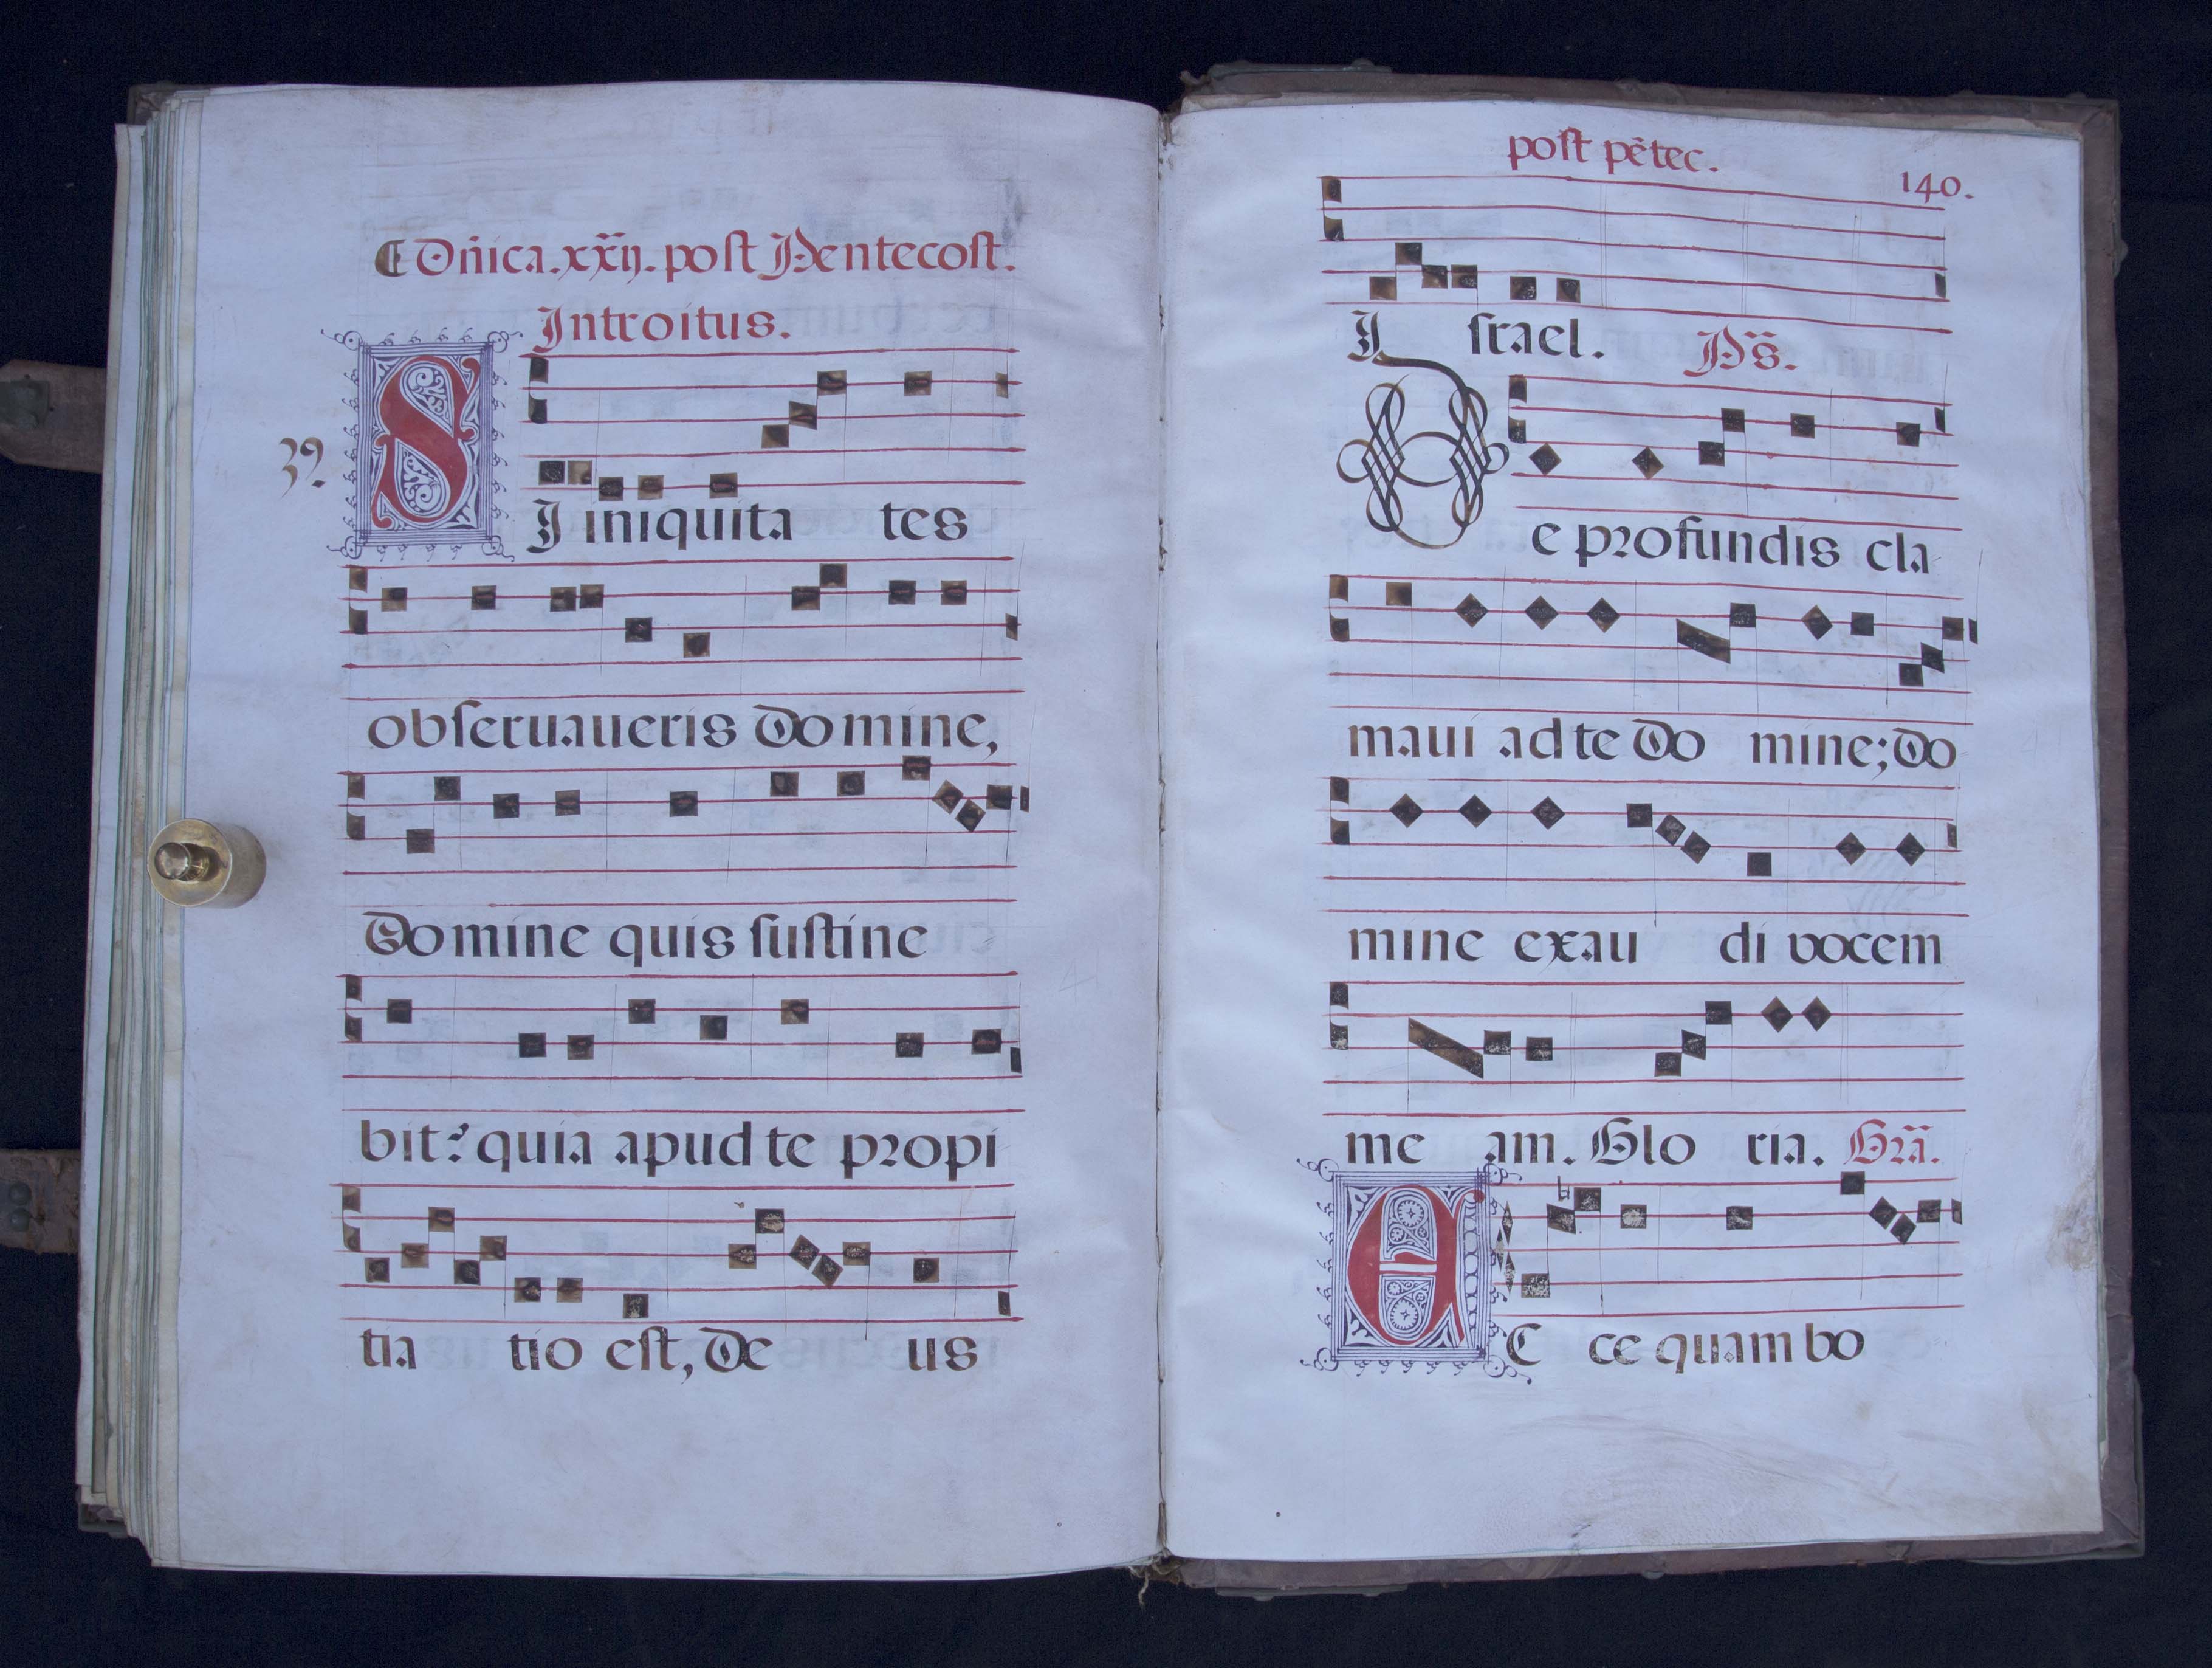 Dñica. xxij. post Pentecost.
Introitus.
39.
SI iniquita tes
obseruaueris Do mine,
Domine quis sustine
bit? quia apud te propi
tia tio est, De us
post pẽtec.
140.
I srael. Ps.
De profundis cla
maui ad te Do mine; Do
mine exau di vocem
me am. Glo ria. Gra.
EC ce quam bo